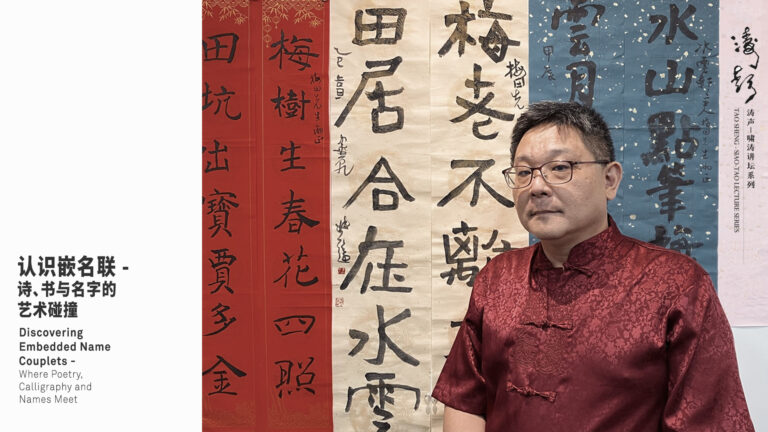 认识嵌名联 -
诗、书与名字的
艺术碰撞
Discovering
Embedded Name
Couplets -
Where Poetry,
Calligraphy and
Names Meet
梅樹生春花四照
田坑出寶賈多金
梅老不離
田居合在水雲
水山點筆梅
雲月
甲辰
涛声—啸涛讲坛系列
TAO SHENG - SIAO TAO LECTURE SERIES